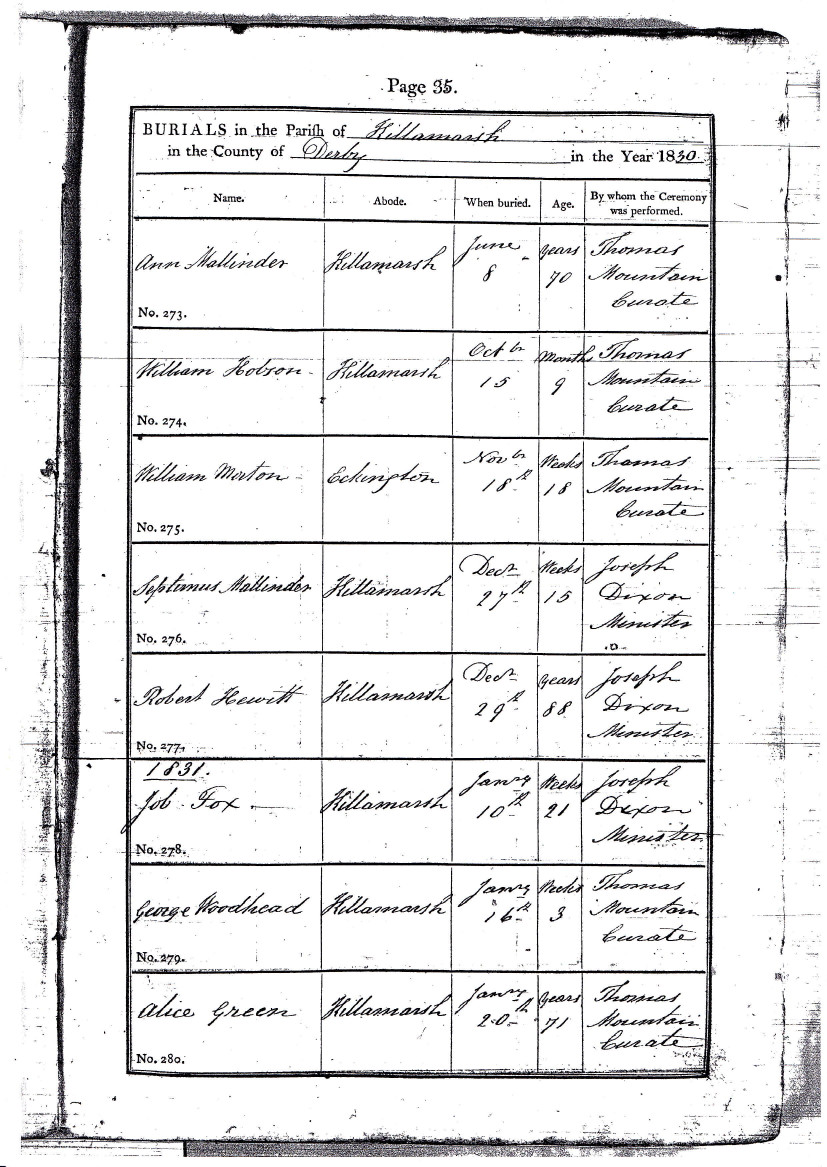 Page 35.
BURIALS in the Parish of Killamarsh
in the County of Derby in the Year 1830
Name. Abode. When buried. Age. By whom the Ceremony was performed.
Ann Mallinder Killamarsh June 8 Years 70 Thomas Mountain Curate
No. 273.
William Hobson Killamarsh Octbr 15 Months 9 Thomas Mountain Curate
No. 274.
William Morton Eckington Novbr 18th Weeks 18 Thomas Mountain Curate
No. 275.
Septimus Mallinder Killamarsh Decr 27th Weeks 15 Joseph Dixon Minister
No. 276.
Robert Hewitt Killamarsh Decr 29th Years 88 Joseph Dixon Minister
No. 277.
1831.
Job Fox Killamarsh Janry 10th Weeks 21 Joseph Dixon Minister
No. 278.
George Woodhead Killamarsh Janry 16th Weeks 3 Thomas Mountain Curate
No. 279.
Alice Green Killamarsh Janry 20th Years 71 Thomas Mountain Curate
No. 280.